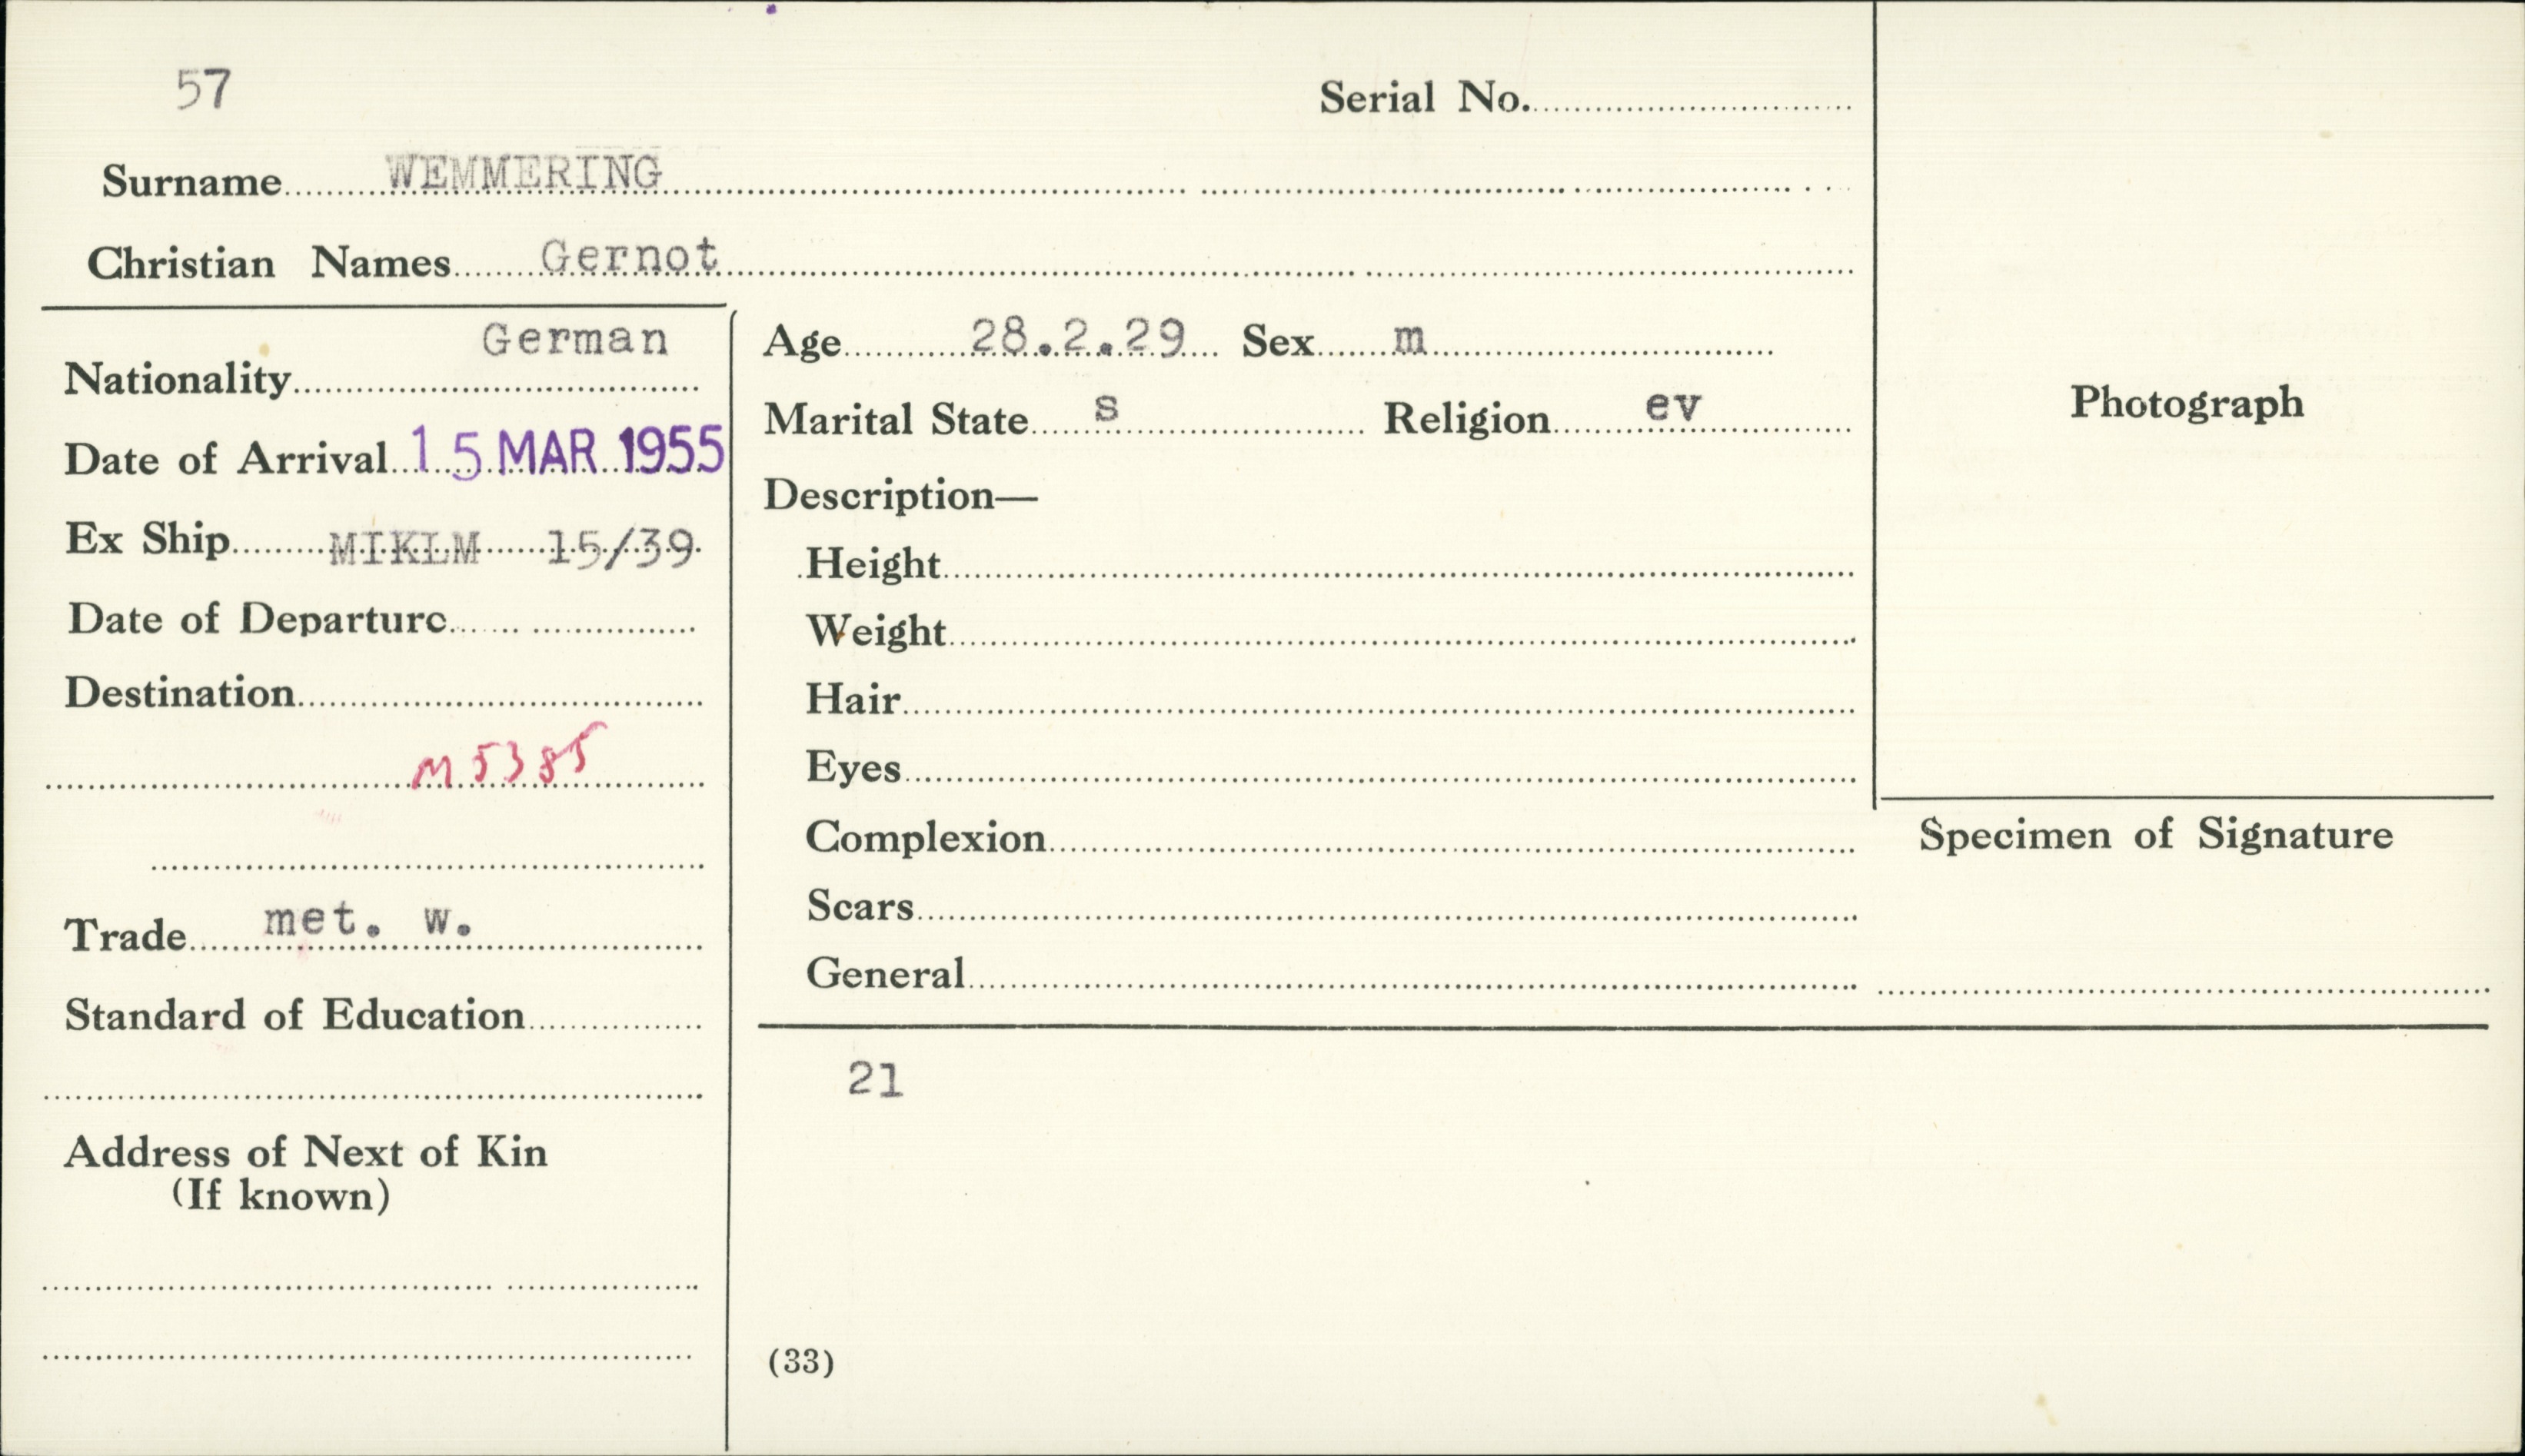 57
Serial No.
Surname WEMMERING
Christian Names Gernot
Nationality German
Date of Arrival 15 MAR 1955
Ex Ship MIKLM 15/39
Date of Departure
Destination
M5385
Trade met. w.
Standard of Education
Address of Next of Kin
(If known)
Age 28.2.29 Sex m
Marital State s Religion ev
Description—
Height
Weight
Hair
Eyes
Complexion
Scars
General
21
(33)
Photograph
Specimen of Signature